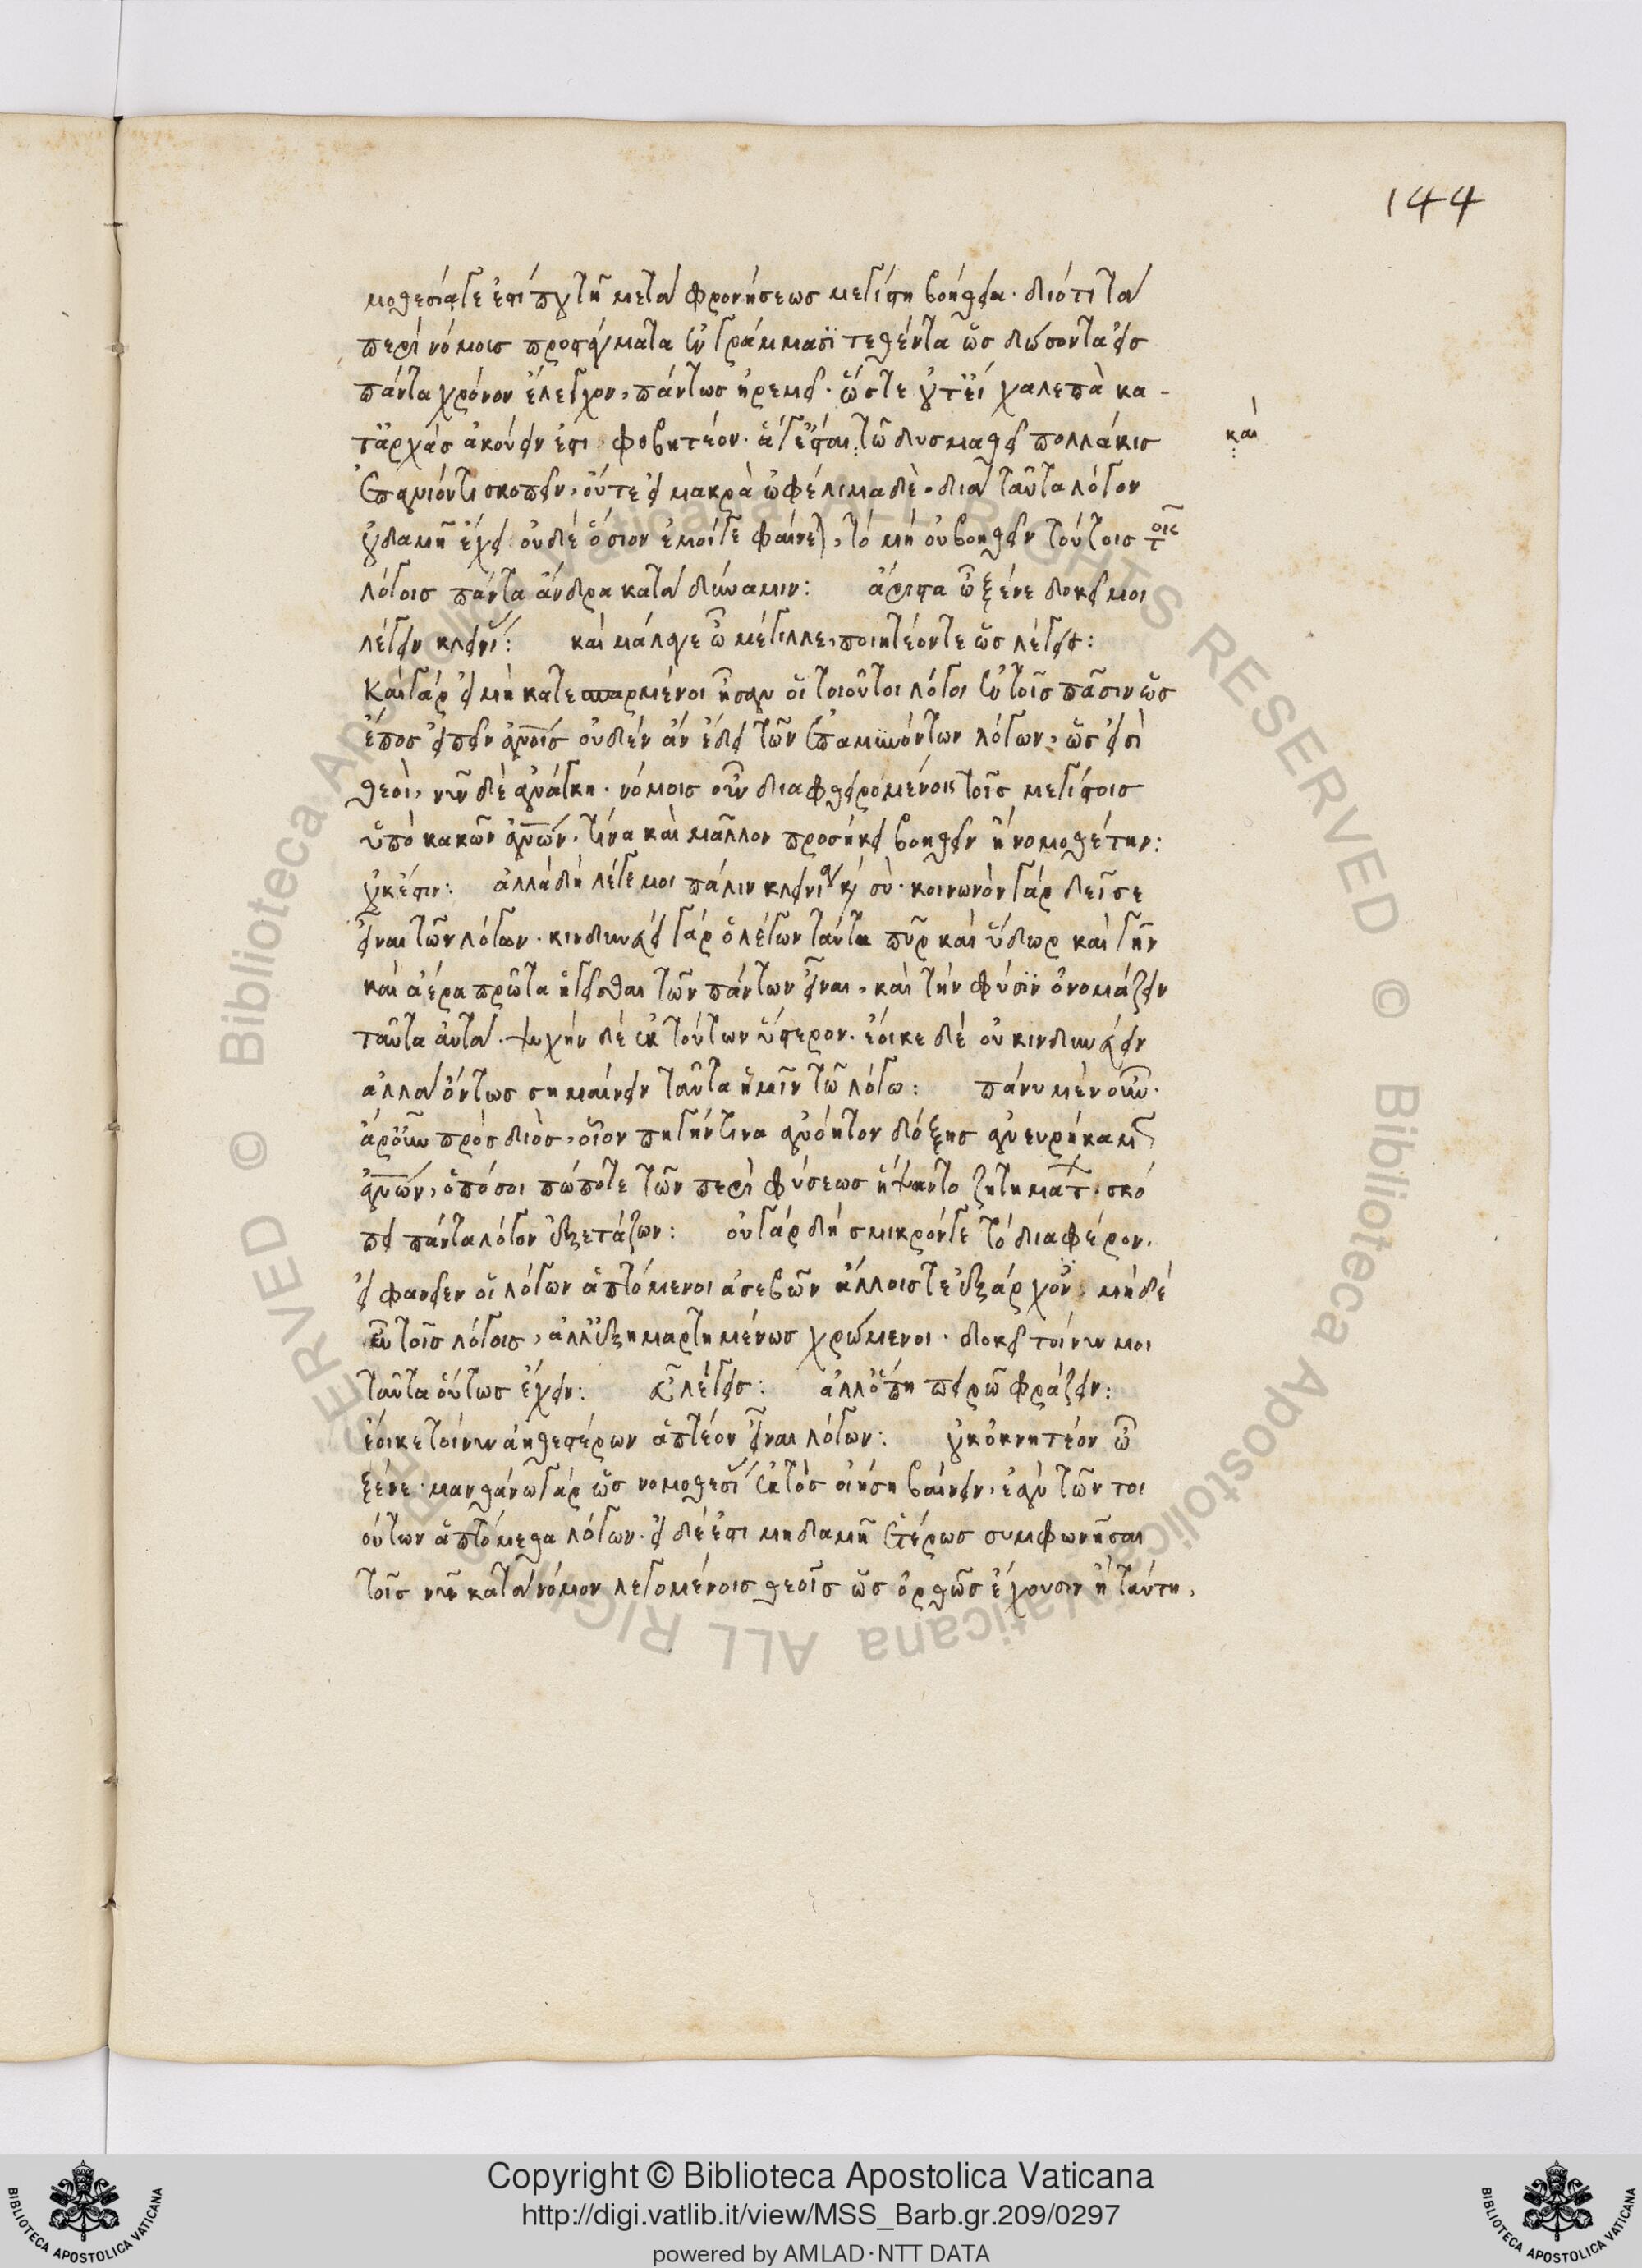 144
μοθεσίᾳ γε ἐστί που τῇ μετὰ φρονήσεως μεγίστη βοήθεια· διότι τὰ
περὶ νόμοις προστάγματα ἐν γράμμασι τεθέντα ὡς δώσοντα εἰς
πάντα χρόνον ἔλεγχον, πάντως ἠρεμεῖ· ὥστε οὔτ' εἰ χαλεπὰ κα-
τ' ἀρχὰς ἀκούειν ἐστὶ φοβητέον· ἅ γ' ἔσται τῷ δυσμαθεῖ πολλάκις
καὶ
ἐπανιόντι σκοπεῖν, οὔτε εἰ μακρὰ ὠφέλιμα δὲ· διὰ ταῦτα λόγον
οὐδαμῇ ἔχει· οὐδὲ ὅσιον ἐμοί γε φαίνεται, τὸ μὴ οὐ βοηθεῖν τούτοις τοῖς
λόγοις πάντα ἄνδρα κατὰ δύναμιν: ἄριστα ὦ ξένε δοκεῖ μοι
λέγειν κλεινί: καὶ μάλα γε ὦ μέγιλλε, ποιητέον τε ὡς λέγει:
Καὶ γὰρ εἰ μὴ κατεσπαρμένοι ἦσαν οἱ τοιοῦτοι λόγοι ἐν τοῖς πᾶσιν ὡς
ἔπος εἰπεῖν ἀνοις οὐδὲν ἂν ἔδει τῶν ἐπαμυνόντων λόγων, ὡς εἰσὶ
θεοὶ, νῦν δὲ ἀνάγκη· νόμοις οὖν διαφθειρομένοις τοῖς μεγίστοις
ὑπὸ κακῶν ἀνων, τίνα καὶ μᾶλλον προσήκει βοηθεῖν ἢ νομοθέτην:
οὐκ ἔστιν: ἀλλὰ δὴ λέγε μοι πάλιν κλεινία καὶ σὺ· κοινωνὸν γὰρ δεῖ σε
εἶναι τῶν λόγων· κινδυνεύει γὰρ ὁ λέγων ταῦτα πῦρ καὶ ὕδωρ καὶ γῆν
καὶ ἀέρα πρῶτα ἡγεῖσθαι τῶν πάντων εἶναι, καὶ τὴν φύσιν ὀνομάζειν
ταῦτα αὐτὰ· ψυχὴν δὲ ἐκ τούτων ὕστερον· ἔοικε δὲ οὐ κινδυνεύειν
ἀλλὰ ὄντως σημαίνειν ταῦτα ἡμῖν τῷ λόγῳ: πάνυ μὲν οὖν·
ἆρ' οὖν πρὸς διὸς, οἷον πηγήν τινα ἀνοήτου δόξης ἀνευρήκαμεν
ἀνων, ὁπόσοι πώποτε τῶν περὶ φύσεως ἥψαντο ζητημάτων· σκό
πει πάντα λόγον ἐξετάζων: οὐ γὰρ δὴ σμικρόν γε τὸ διαφέρον,
εἰ φανεῖεν οἱ λόγων ἁπτόμενοι ἀσεβῶν ἄλλοις τε ἐξάρχοντες, μηδὲ
εὖ τοῖς λόγοις, ἀλλ' ἐξημαρτημένως χρώμενοι· δοκεῖ τοίνυν μοι
ταῦτα οὕτως ἔχειν: εὖ λέγεις: ἀλλ' ὅπη πειρῶ φράζειν:
ἔοικε τοίνυν ἀηθεστέρων ἁπτέον εἶναι λόγων: οὐκ ὀκνητέον ὦ
ξένε· μανθάνω γὰρ ὡς νομοθεσίας ἐκτὸς οἰήσῃ βαίνειν, ἐὰν τῶν τοι
ούτων ἁπτόμεθα λόγων· εἰ δὲ ἔστι μηδαμῇ ἑτέρως συμφωνῆσαι
τοῖς νῦν κατὰ νόμον λεγομένοις θεοῖς ὡς ὀρθῶς ἔχουσιν ἢ ταύτῃ,
Copyright © Biblioteca Apostolica Vaticana
http://digi.vatlib.it/view/MSS_Barb.gr.209/0297
powered by AMLAD·NTT DATA